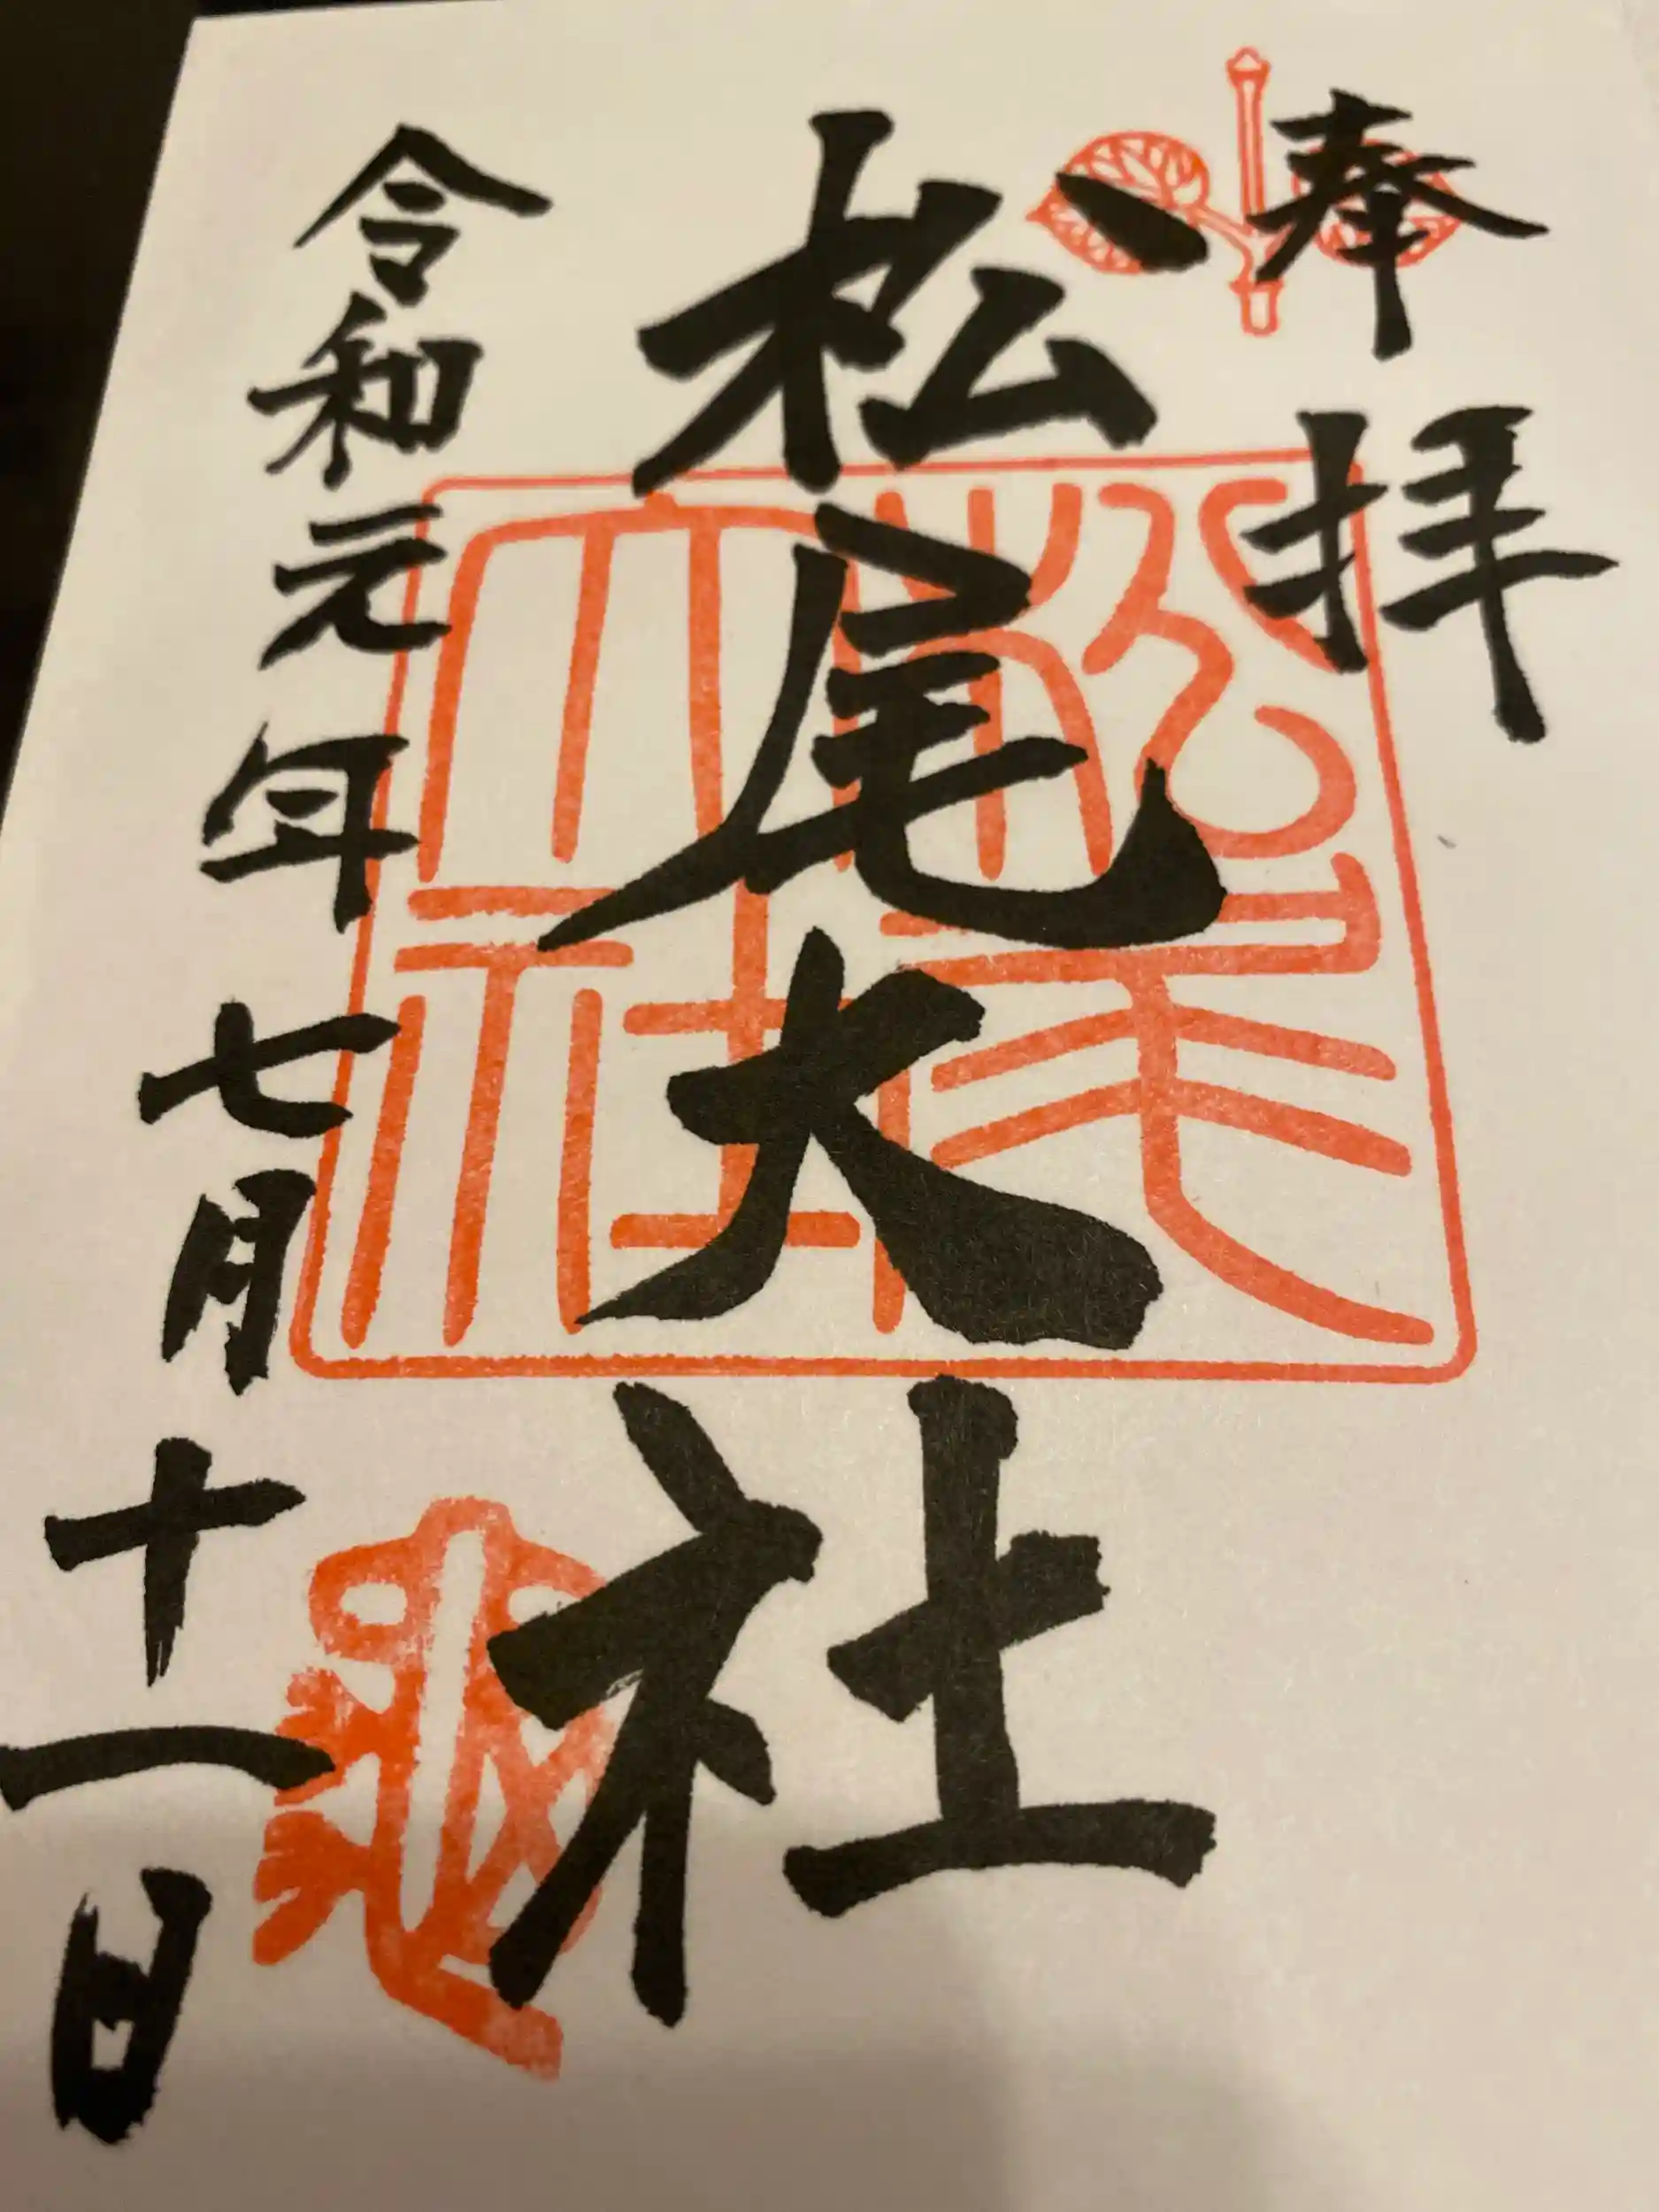 奉拝
松尾大社
松尾大社
令和元年七月十一日